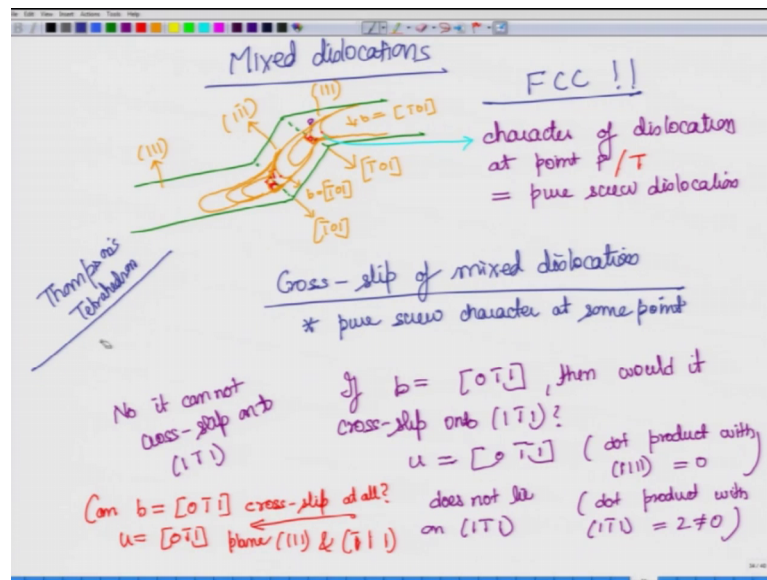 File Edit View Insert Actions Tools Help
Mixed dislocations
FCC !!
(111)
(11̄1)
(111)
b = [1̄01]
[1̄01]
b = [1̄01]
[1̄01]
character of dislocation
at point P/T
= pure screw dislocation
Thompson's
Tetrahedron
Cross-slip of mixed dislocation
* pure screw character at some point
If b = [01̄1], then would it
cross-slip onto (11̄1)?
u = [01̄1] (dot product with
(111) = 0)
does not lie
on (11̄1)
(dot product with
(11̄1) = 2 ≠ 0)
No it cannot
cross-slip onto
(11̄1)
Can b = [01̄1] cross-slip at all?
u = [01̄1] plane (111) & (1̄11)